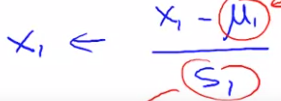 x₁ ← (x₁ - μ₁) / S₁